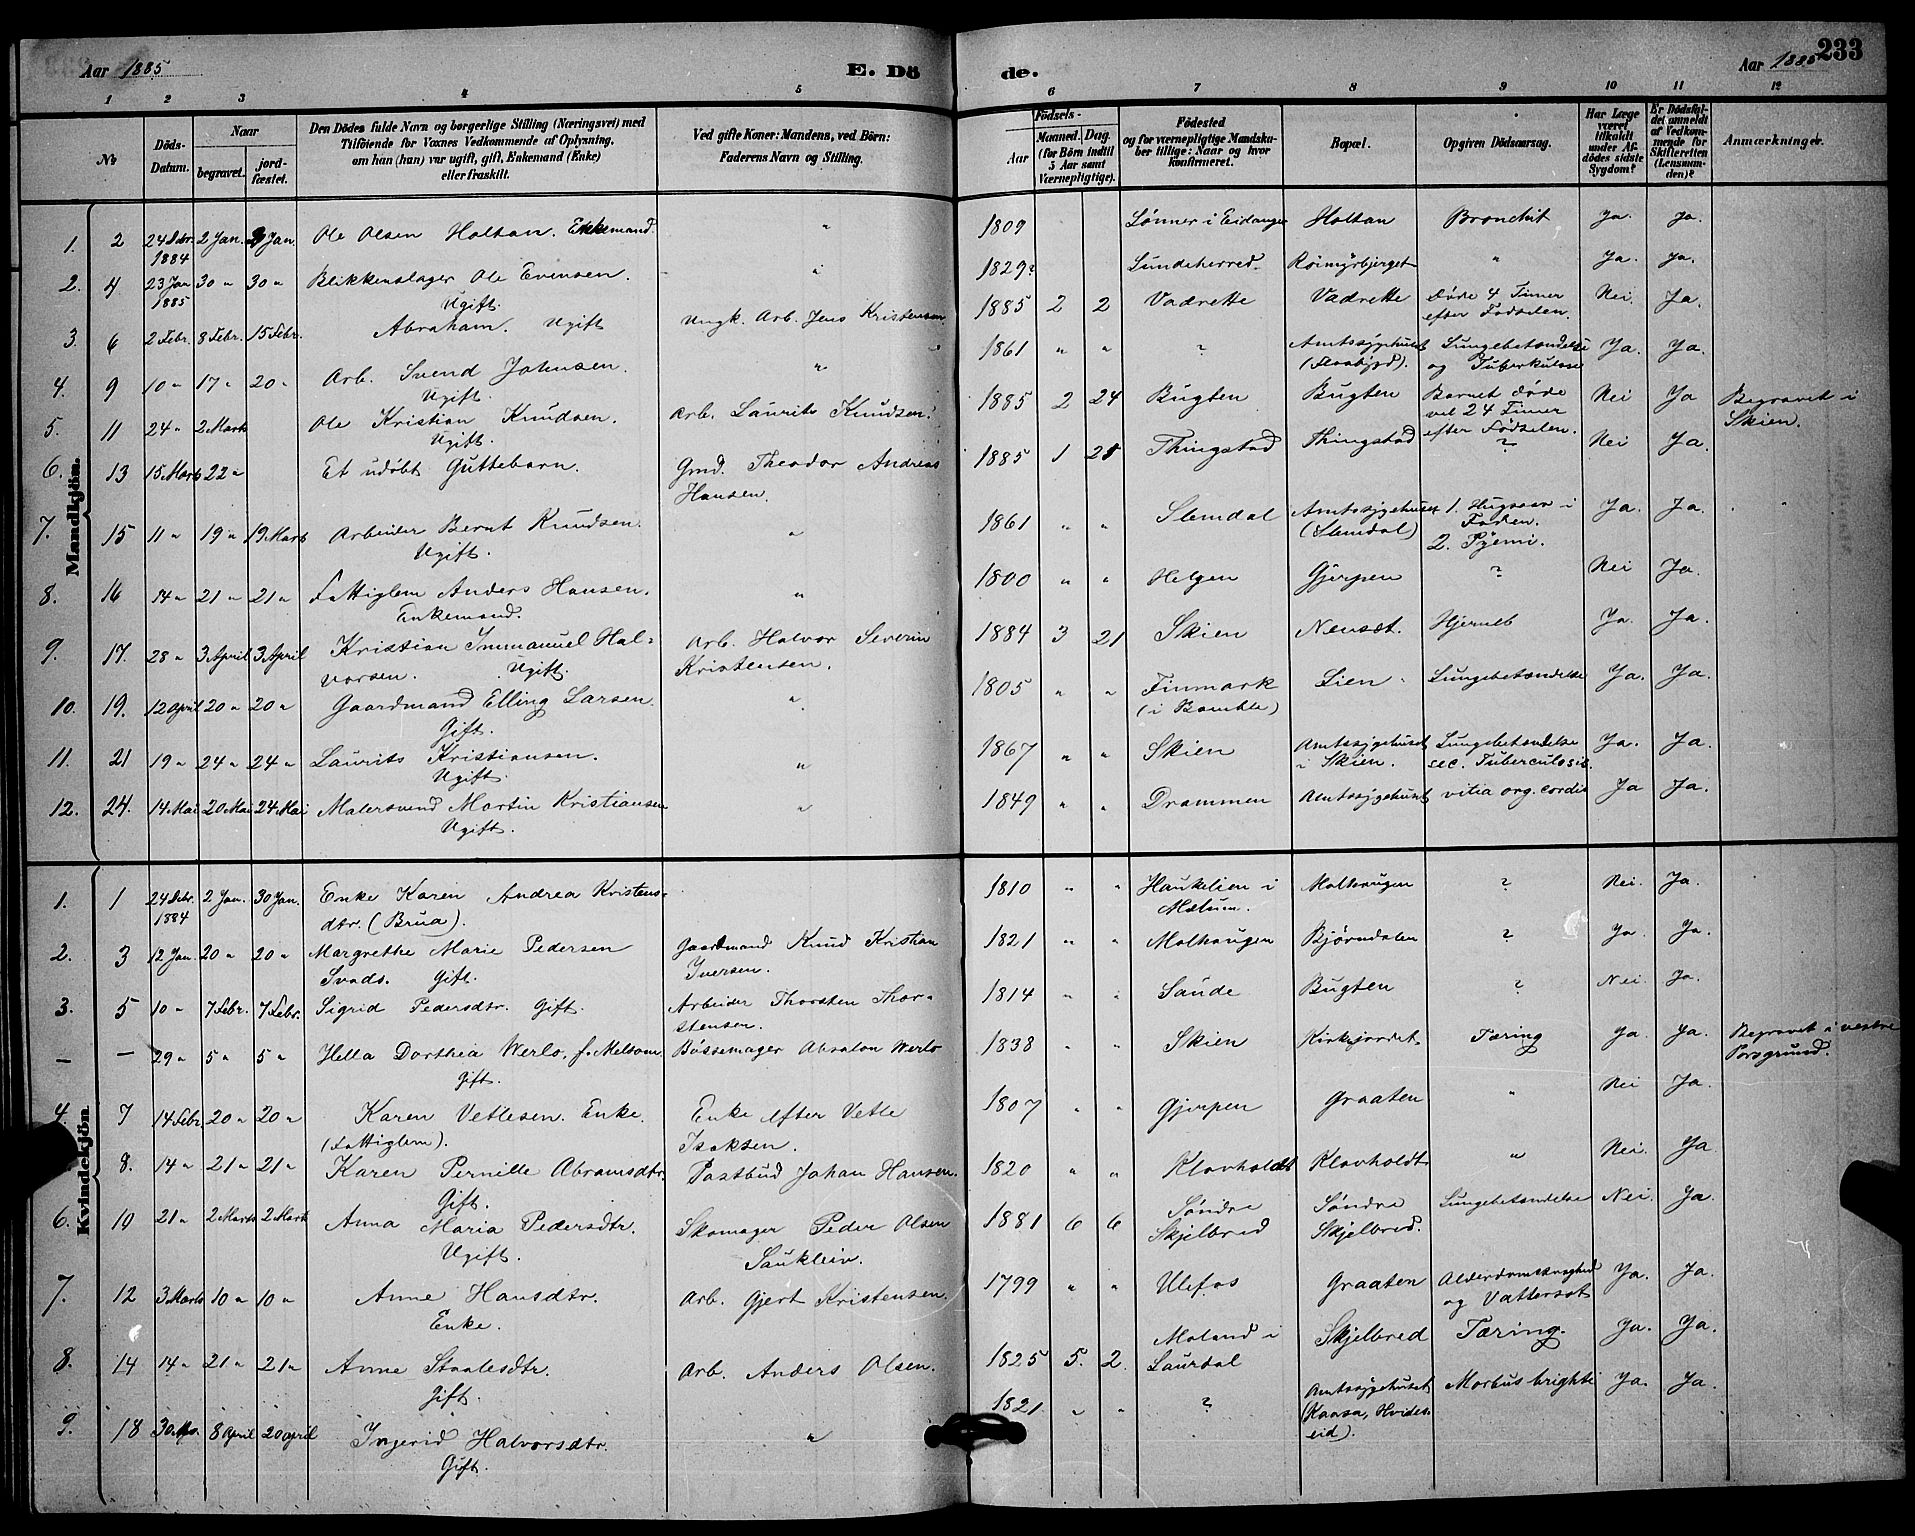 Aar 1885
E. Dö
de.
Aar 1885
233
1 2 3 4 5 6 7 8 9 10 11 12
No
Döds-
Datum.
Naar
begravet.
jord-
fæstet.
Den Dödes fulde Navn og borgerlige Stilling (Næringsvei) med
Tilföiende for Voxnes Vedkommende af Oplysning,
om han (hun) var ugift, gift, Enkemand (Enke)
eller fraskilt.
Ved gifte Koner: Mandens, ved Börn:
Faderens Navn og Stilling.
Födsels-
Aar
Maaned. Dag.
(for Börn indtil
5 Aar samt
Værnepligtige).
Födested
og for værnepligtige Mandska-
ber tillige: Naar og hvor
konfirmeret.
Bopæl.
Opgiven Dödsaarsag.
Har Læge
været
tilkaldt
under Af-
dödes sidste
Sygdom?
Er Dödsfal-
det anmeldt
af Vedkom-
mende for
Skifteretten
(Lensman-
den)?
Anmærkninger.
Mandkjön.
1. 2 24 Dbr. 2 Jan. 2 Jan. Ole Olsen Holtan. Enkemand. " 1809 Lønner i Eidanger Holtan Bronchit Ja. Ja.
1884
2. 4 23 Jan 30 " 30 " Blikkenslager Ole Evensen. " 1829? Lundeherred. Röimyrbjerget " Ja. Ja.
1885 Ugift.
3. 6 2 Febr. 8 Febr. 15 Febr. Abraham. Ugift Ungk. Arb. Jens Kristensen 1885 2 2 Vadrette Vadrette Døde 4 Timer Nei. Ja.
efter Fødselen.
4. 9 10 " 17 " 20 " Arb. Svend Johnsen. " 1861 " " ? Amtssygehuset Lungebetændelse Ja. Ja.
Ugift. (Flaabygd). og Tuberkulose
5. 11 24 " 2 Marts Ole Kristian Knudsen. Arb. Laurits Knudsen. 1885 2 24 Bugten Bugten Barnet døde Nei Ja Begravet i
Ugift. vel 24 Timer Skien.
efter Fødselen.
6. 13 15 Marts 22 " Et udøbt Guttebarn. Gmd. Theodor Andreas 1885 1 25 Thingstad Thingstad ? Nei Ja.
Hansen.
7. 15 11 " 19 " 19 Marts Arbeider Bernt Knudsen. " 1861 " " Slemdal Amtssygehuset 1. Hugsaar i Ja. Ja.
Ugift. (Slemdal) Foden.
2. Pyemi.
8. 16 14 " 21 " 21 " Fattiglem Anders Hansen. " 1800 " " Helgen Gjerpen ? Nei Ja.
Enkemand.
9. 17. 28 " 3 April 3 April Kristian Immanuel Hal= Arb. Halvor Severin 1884 3 21 Skien Nensæt. Hjerneb Ja. Ja.
vorsen. Ugift. Kristensen.
10. 19. 12 April 20 " 20 " Gaardmand Elling Larsen. " 1805 " " Finmark Lien Lungebetændelse Ja. Ja.
Gift. (i Bamble)
11. 21 19 " 24 " 24 " Laurits Kristiansen. " 1867 " " Skien Amtssygehuset Lungebetændelse Ja. Ja.
Ugift. i Skien. sec. Tuberculosis.
12. 24. 14 Mai 20 Mai 24 Mai Malersvend Martin Kristiansen " 1849 " " Drammen Amtssygehuset vitia org. cordis Ja Ja.
Ugift.
Kvindekjön.
1. 1 24 Dbr. 2 Jan. 30 Jan. Enke Karen Andrea Kristens= 1810 " " Haukelien i ? Nei. Ja.
1884 dtr. (Brua). Mælum.
2. 3 12 Jan. 20 " 20 " Margrethe Marie Pedersen Gaardmand Knud Kristian 1821 " " Molhaugen Bjørndalen ? Ja Ja.
Gift. Iversen.
3. 5 10 " 7 Febr. 7 Febr. Sigrid Pedersdtr. Gift. Arbeider Thorsten Thor= 1814 " " Saude Bugten ? Nei. Ja.
stensen.
— — 29 " 5 " 5 " Hella Dorthea Werlo, f. Meltom Bössemager Absalon Werlo 1838 " " Skien Kirkejordet. Tæring Ja Ja. Begravet i vestre
Gift. Porsgrund.
4. 7 14 Febr. 20 " 20 " Karen Vetlesen. Enke. Enke efter Vetle 1807 " " Gjerpen Graaten " Nei Ja.
(Fattiglem). Isaksen.
8. 14 " 21 " 21 " Karen Pernille Abramsdtr. Postbud Johan Hansen. 1820 " " Klovholdt Klovholdt " Nei. Ja
Gift.
6. 10 21 " 2 Marts 2 Marts Anna Maria Pedersdtr. Skomager Peder Olsen 1881 6 6 Søndre Søndre Lungebetændelse Nei. Ja.
Ugift. Sauklein. Skjelbred Skjelbred.
7. 12 3 Marts 10 " 10 " Anne Hansdtr. Arb. Gjert Kristensen. 1799 " " Ulefos Graaten Alderdomssvaghed Ja. Ja.
Enke. og Vattersot
8. 14 14 " 21 " 21 " Anne Staalesdtr. Arb. Anders Olsen. 1825 5. 2. Moland i Skjelbred Tæring. Ja. Ja.
Gift. Laurdal
9. 18 30 8 April 20 April Ingerid Halvorsdtr. " 1821. " " ? Amtssygehuset Morbus brighti Ja. Ja.
Gift. (Kaasa, Hvides=
eid).